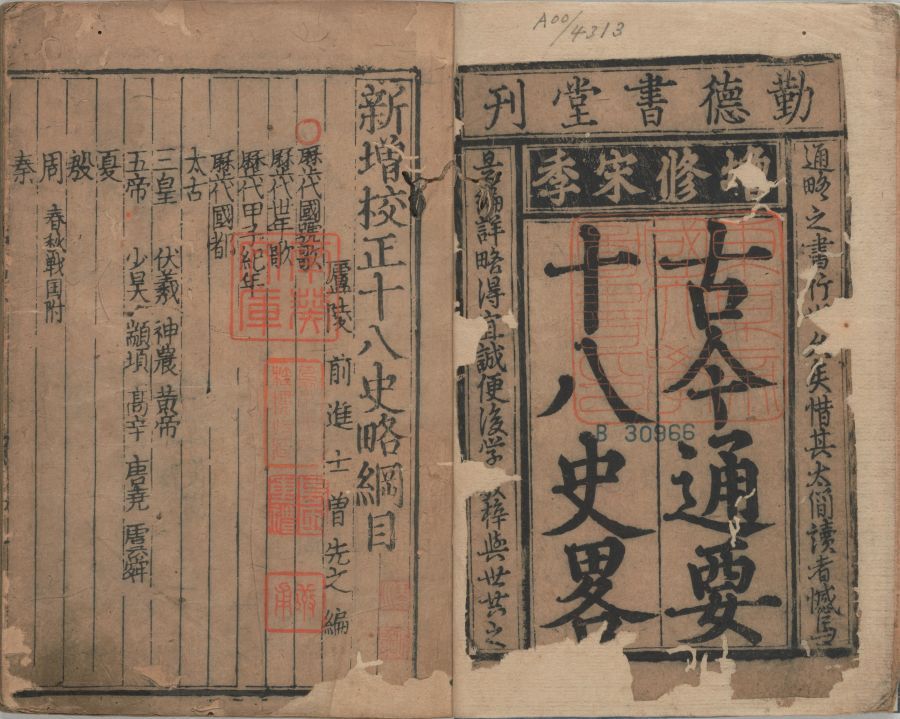 A00/4313
勤德書堂刊
增修宋季
通略之書行世久矣惜其太簡讀者憾焉
古今通要
十八史畧
是編詳略得宜誠便後学 梓與世共之
B 30966
新增校正十八史略綱目
廬陵 前進士曾先之編
歷代國號歌
歷代世年歌
歷代甲子紀年
歷代國都
太古
三皇 伏羲 神農 黃帝
五帝 少昊 顓頊 高辛 唐堯 虞舜
夏
殷
周 春秋戦国附
秦